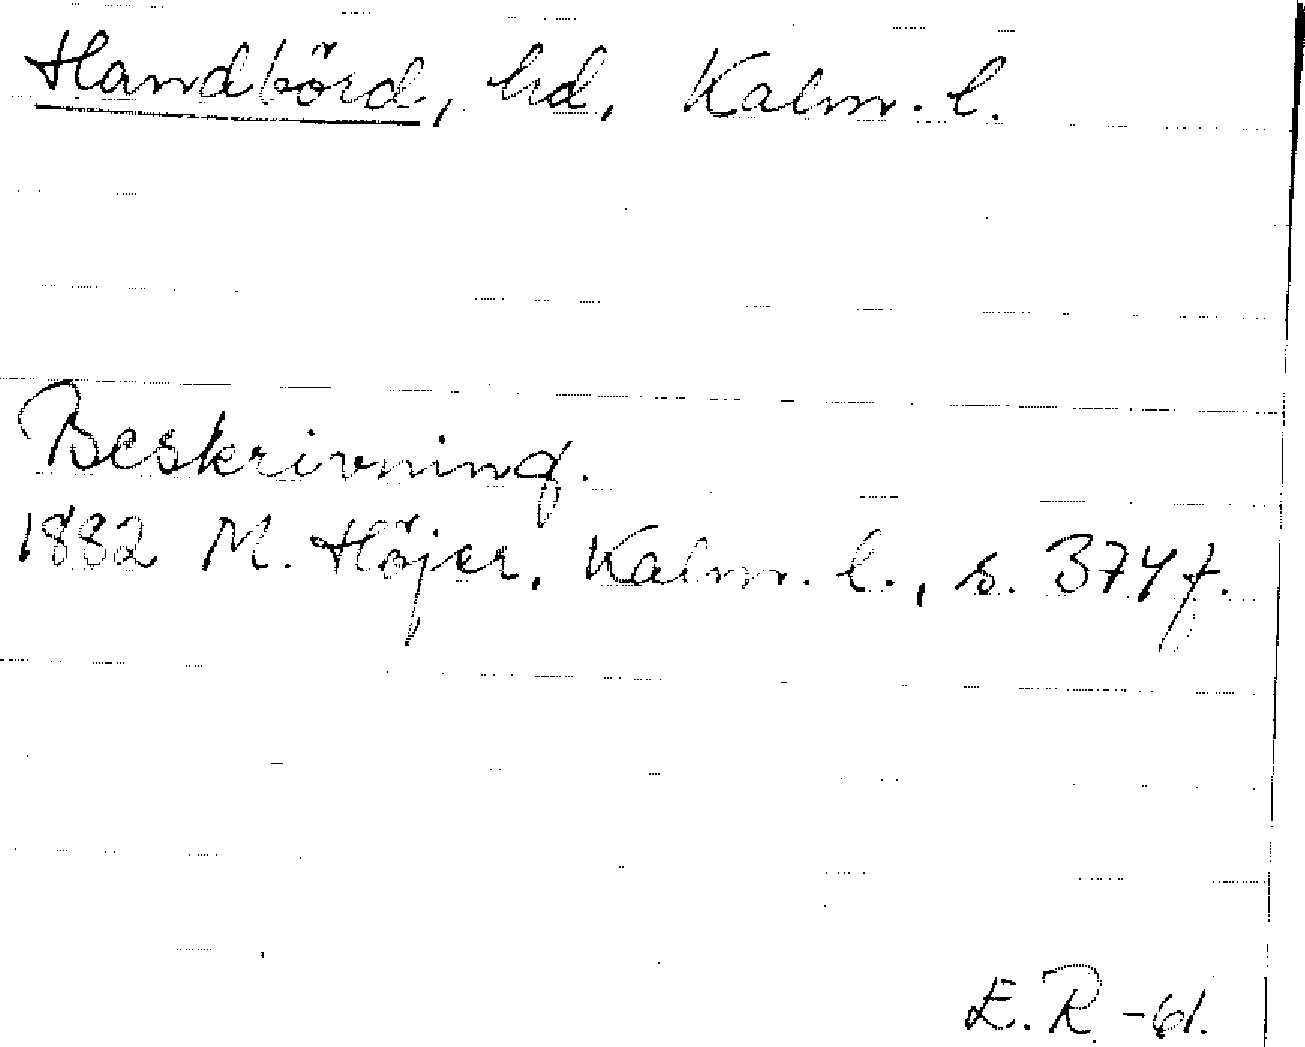 Handbörd, hd, Kalm. l.
Beskrivning.
1882 M. Höjer, Kalm. l., s. 374 f.
E. R. -61.